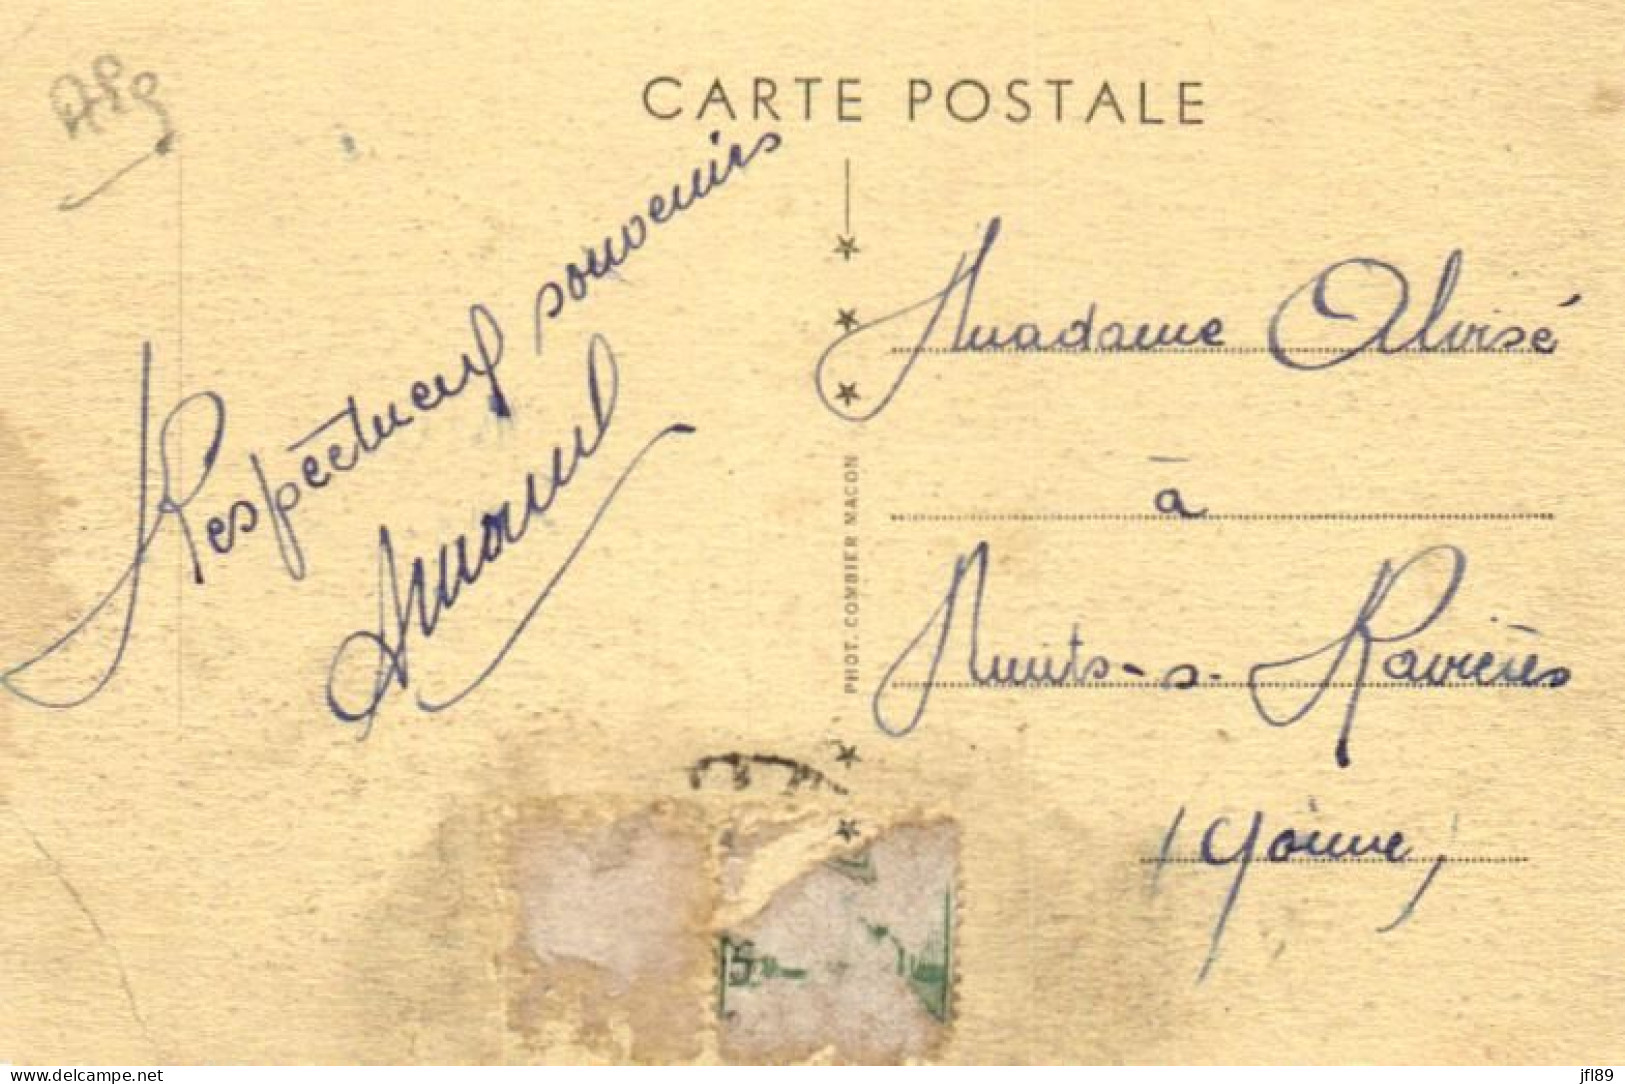 CARTE POSTALE
Respectueux souvenirs
Madame Aloisé
à
Nuits-s-Ravières
(Yonne)
PHOT. COMBIER MACON
5
www.delcampe.net
jfl89